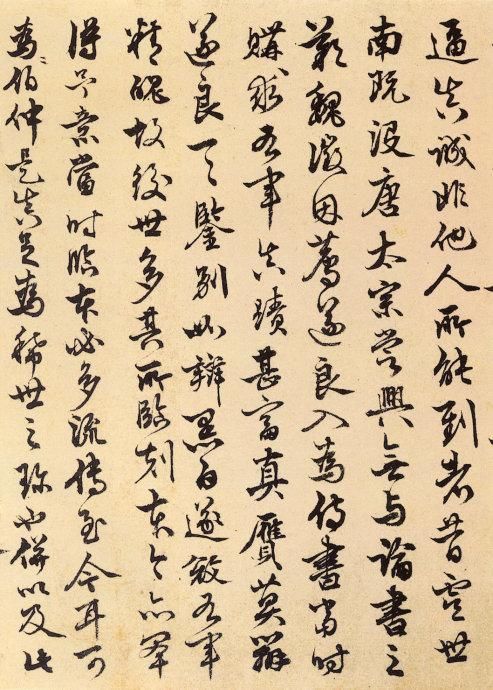 逼真誠非他人所能到者昔虞世
南既没唐太宗嘗興無与論書之
歎魏徵因薦遂良入為侍書當時
購求右軍真蹟甚富真贋莫辨
遂良一一鑒别如辯黑白遂右軍
精故後世多其所臨刻本今亦罕
得意當時臨本必多流傳至今耳可
為伯仲是真足為稀世之珍也併以及此